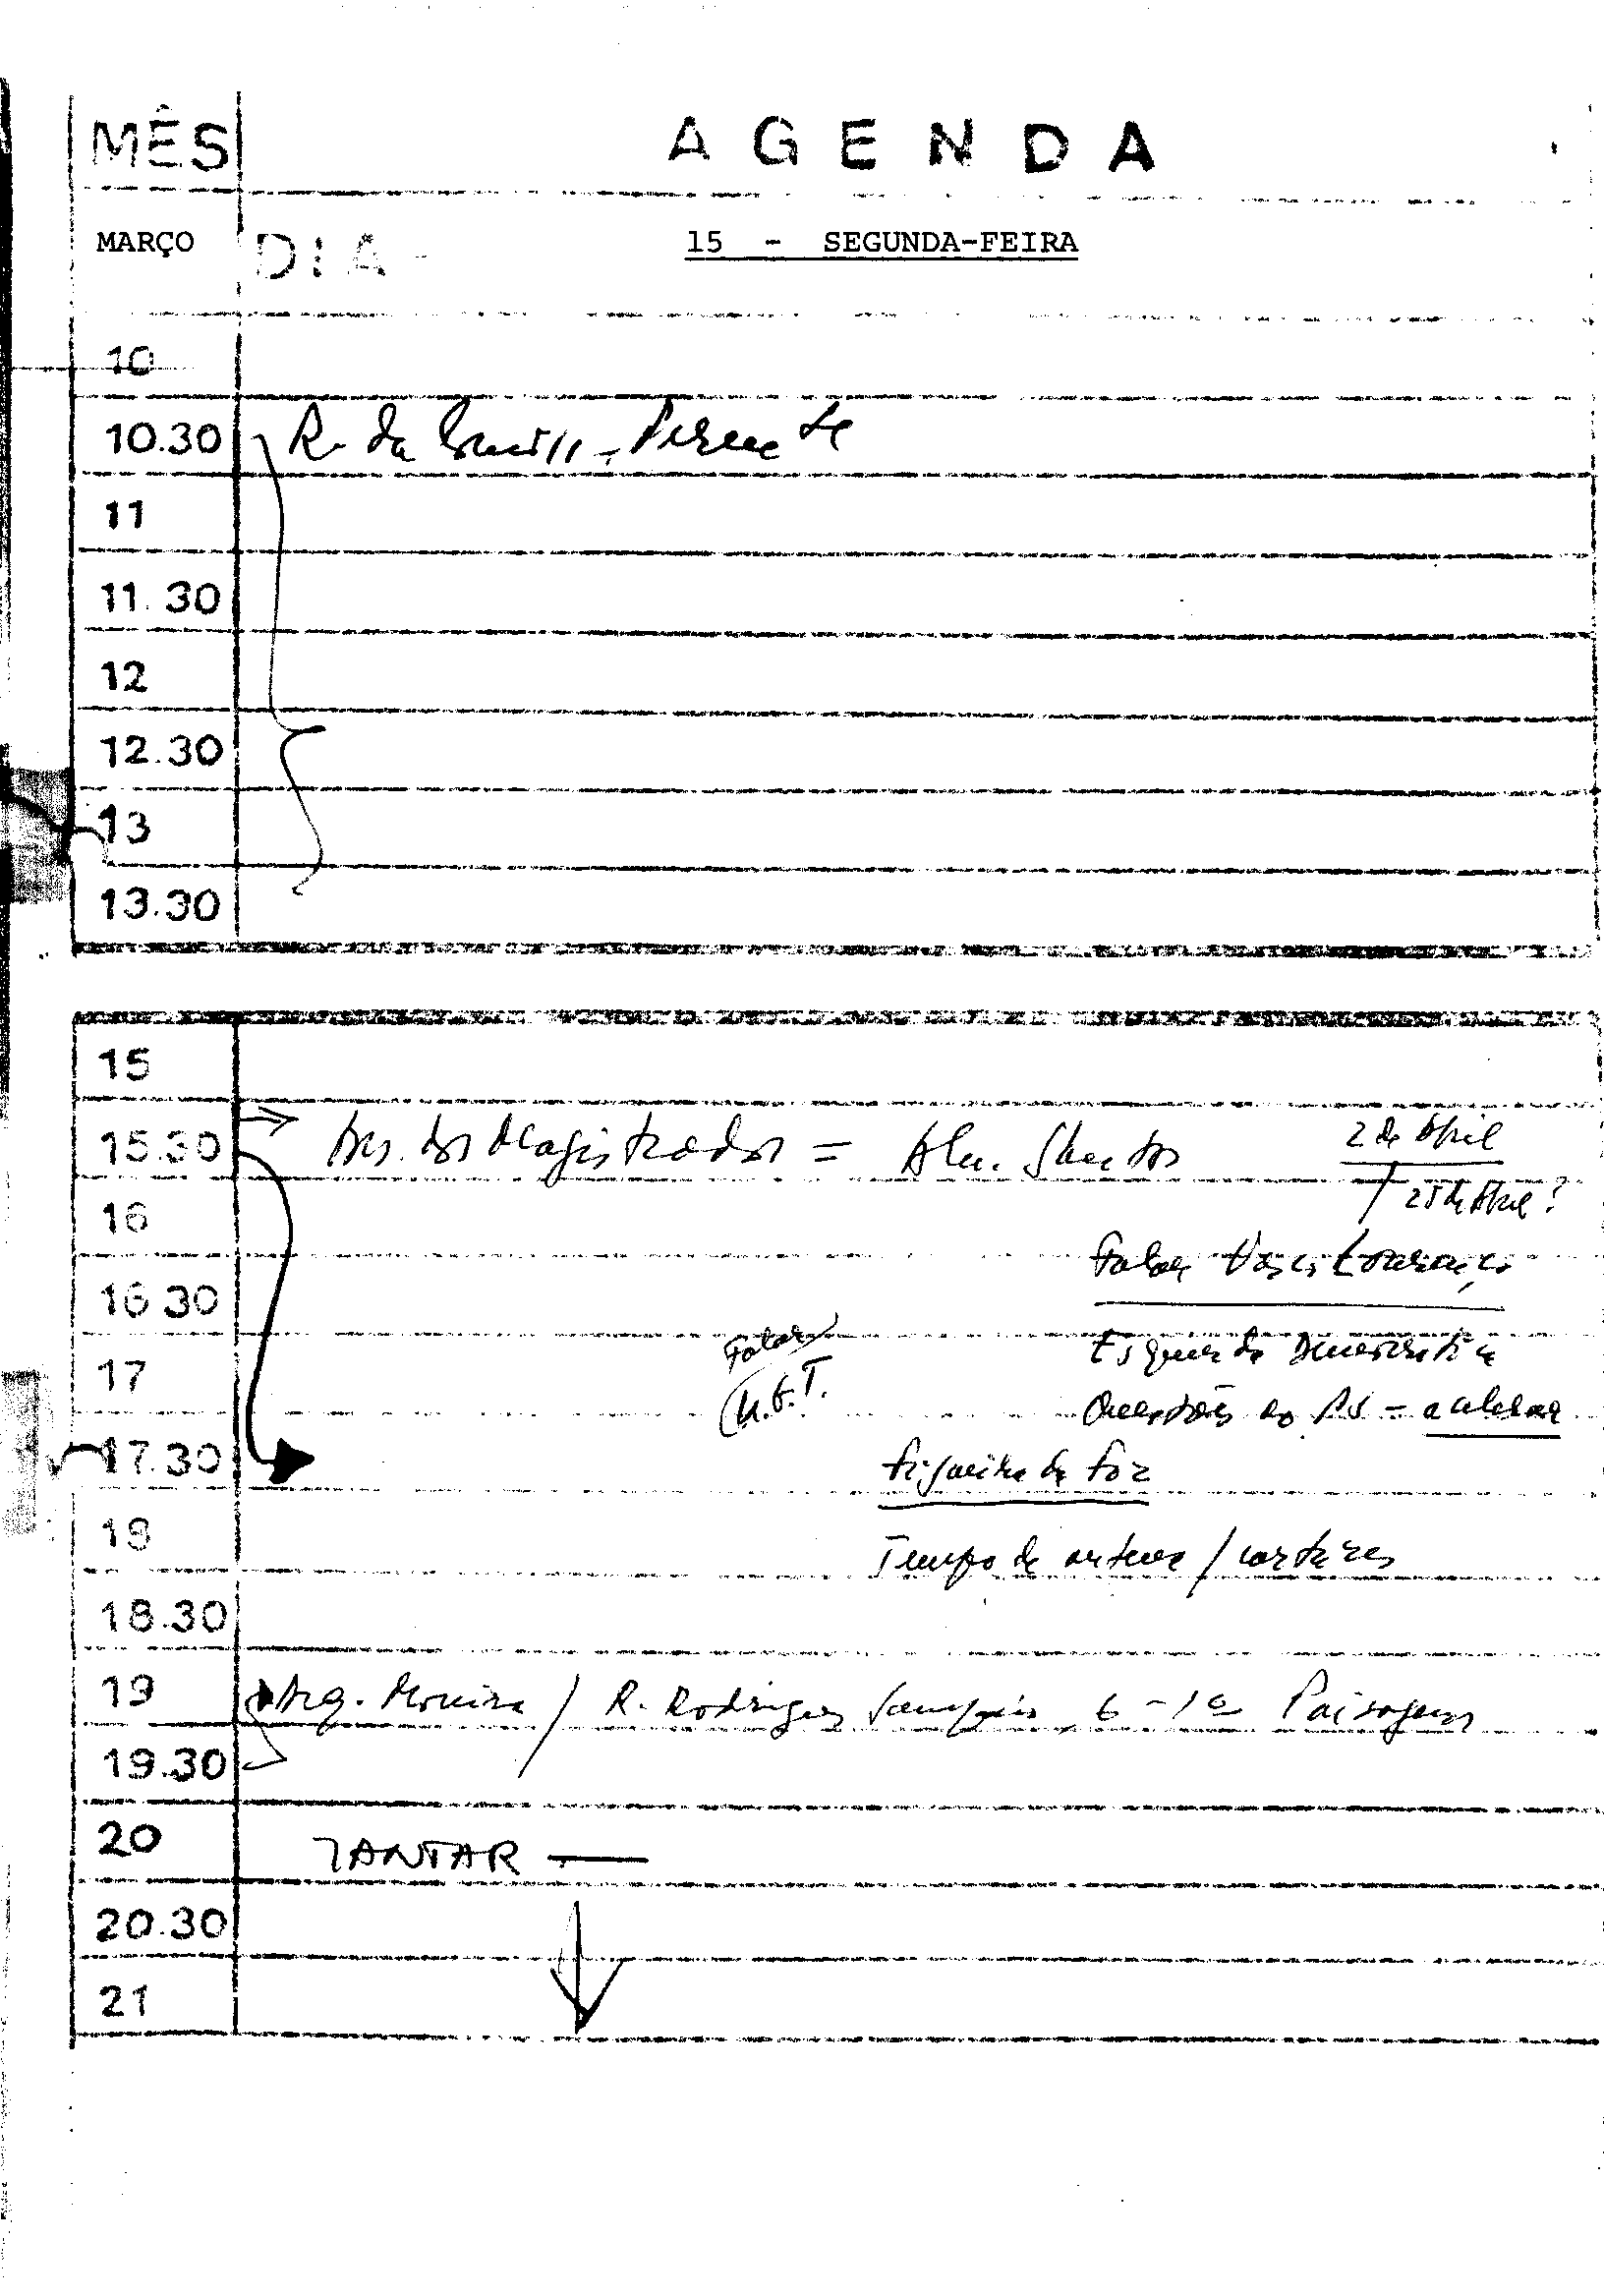 MÊS
AGENDA
MARÇO
DIA
15 - SEGUNDA-FEIRA
10
10.30 R. da
11
11.30
12
12.30
13
13.30
15
15.30 dos Magistrados =
2 de Abril
16
25 de Abril?
Falar Vasco Lourenço
16 30
Falar
Esquerda Democrática
17
U.G.T.
Questões do PS -
17.30
Figueira da Foz
18
Tempo de antena / cartazes
18.30
19 Arq. Moreira / R. Rodrigues Sampaio, 6 - 1º Paisagem
19.30
20 JANTAR —
20.30
21